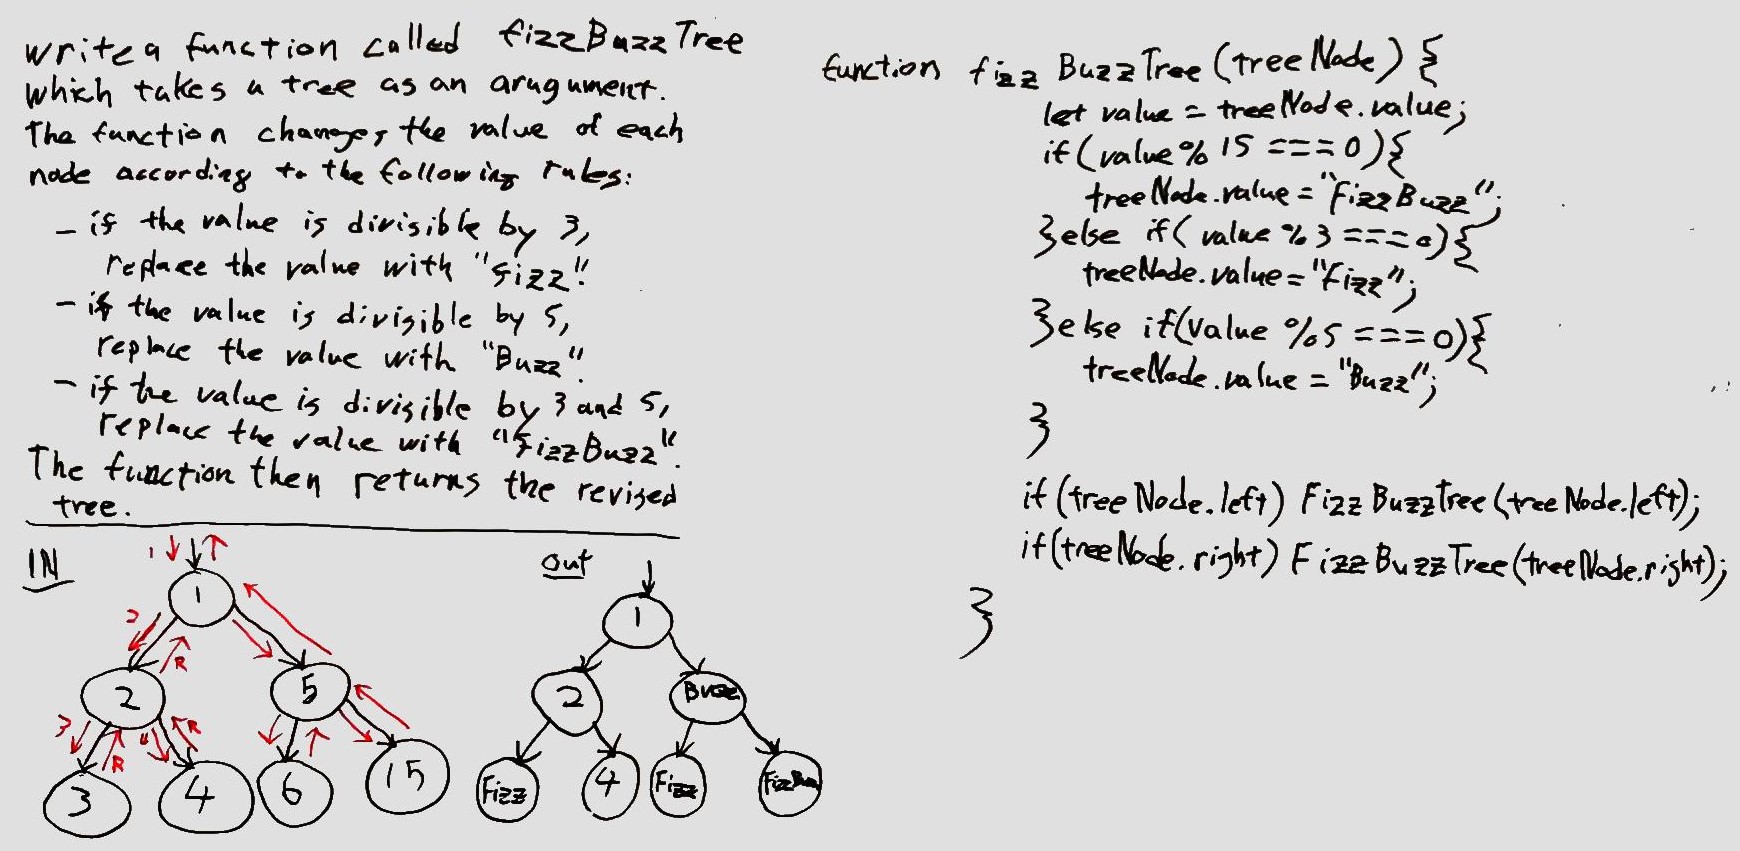 write a function called fizzBuzzTree
which takes a tree as an arugument.
The function changes the value of each
node according to the following rules:
- if the value is divisible by 3,
replace the value with "Fizz".
- if the value is divisible by 5,
replace the value with "Buzz".
- if the value is divisible by 3 and 5,
replace the value with "FizzBuzz".
The function then returns the revised
tree.
IN
1
1
2
R
2
5
3
R
4
R
3
4
6
15
Out
1
2
Buzz
Fizz
4
Fizz
FizzBuzz
function fizzBuzzTree(treeNode) {
let value = treeNode.value;
if(value % 15 === 0){
treeNode.value = "FizzBuzz";
}else if(value % 3 === 0){
treeNode.value = "Fizz";
}else if(value % 5 === 0){
treeNode.value = "Buzz";
}
if(treeNode.left) FizzBuzzTree(treeNode.left);
if(treeNode.right) FizzBuzzTree(treeNode.right);
}